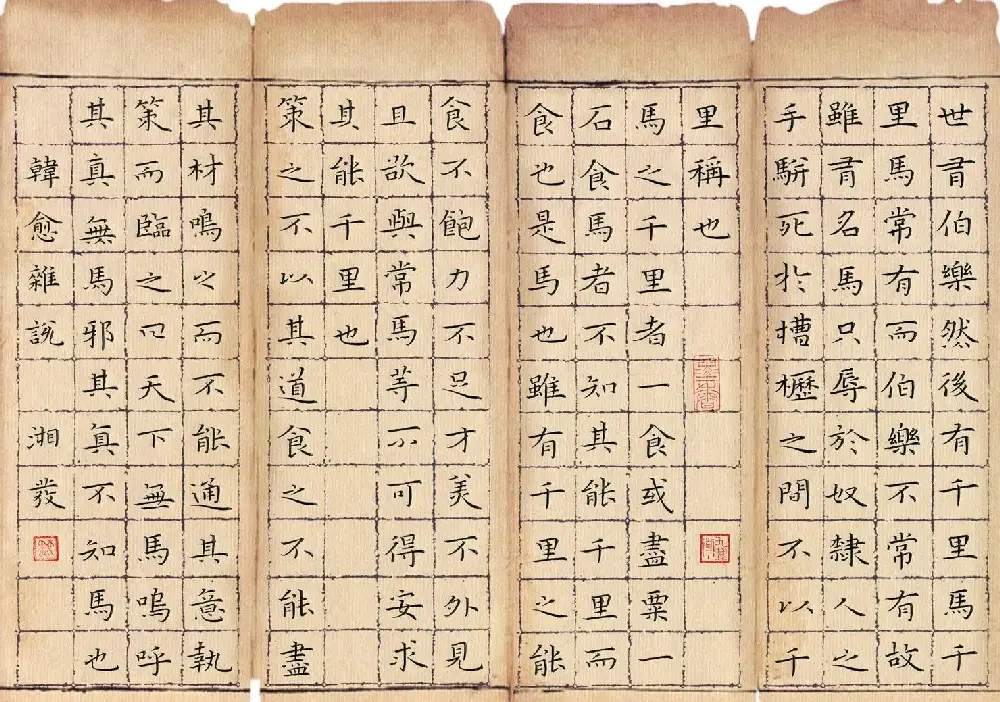 世有伯樂然後有千里馬千
里馬常有而伯樂不常有故
雖有名馬只辱於奴隸人之
手駢死於槽櫪之間不以千
里稱也
馬之千里者一食或盡粟一
石食馬者不知其能千里而
食也是馬也雖有千里之能
食不飽力不足才美不外見
且欲與常馬等不可得安求
其能千里也
策之不以其道食之不能盡
其材鳴之而不能通其意執
策而臨之曰天下無馬嗚呼
其真無馬邪其真不知馬也
韓愈雜說 湘發